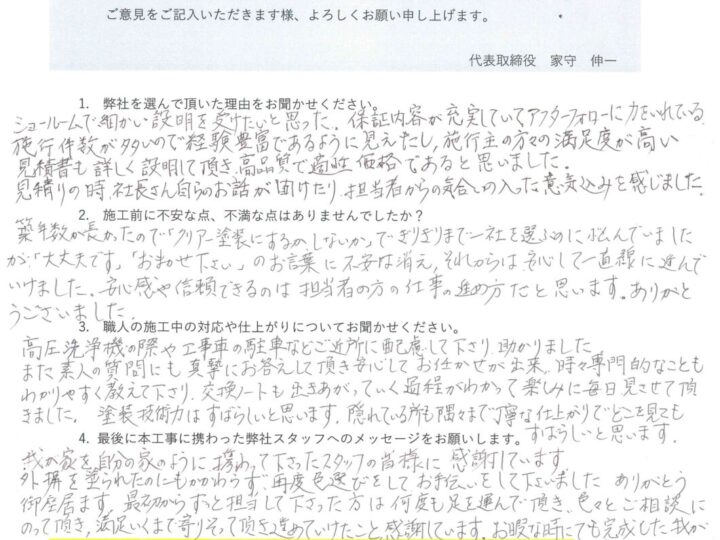 ご意見をご記入いただきます様、よろしくお願い申し上げます。
代表取締役 家守 伸一
1. 弊社を選んで頂いた理由をお聞かせください。
ショールームで細かい説明を受けたいと思った。保証内容が充実していてアフターフォローに力をいれている。
施行件数が多いので経験豊富であるように見えたし、施行主の方々の満足度が高い
見積書も詳しく説明して頂き、高品質で適性価格であると思いました。
見積りの時、社長さん自らのお話が聞けたり、担当者からの気合いの入った意気込みを感じました。
2. 施工前に不安な点、不満な点はありませんでしたか?
築年数が長かったので「クリアー塗装にするか、しないか」でぎりぎりまで一社を選ぶのに悩んでいました
が、「大丈夫です」「おまかせ下さい」のお言葉に不安は消え、それからは安心して一直線に進んで
いけました。安心感や信頼できるのは担当者の方の仕事の進め方だと思います。ありがと
うございました
3. 職人の施工中の対応や仕上がりについてお聞かせください。
高圧洗浄機の際や工事車の駐車などご近所に配慮して下さり、助かりました
また素人の質問にも真摯にお答えして頂き安心してお任せが出来、時々専門的なことも
わかりやすく教えて下さり、交換ノートも出きあがっていく過程がわかって楽しみに毎日見させて頂
きました。塗装技術力はすばらしいと思います。隠れている所も隅々まで丁寧な仕上がりでどこを見ても
すばらしいと思います。
4. 最後に本工事に携わった弊社スタッフへのメッセージをお願いします。
我が家を自分の家のように携わって下さったスタッフの皆様に感謝しています
外構を塗られたのにもかかわらず、再度色選びをしてお手伝いをして下さいました ありがとう
御座居ます。最初からずっと担当して下さった方は何度も足を運んで頂き、色々とご相談に
のって頂き、満足いくまで寄りそって頂き進めていけたこと、感謝しています。お暇な時にでも完成した我が